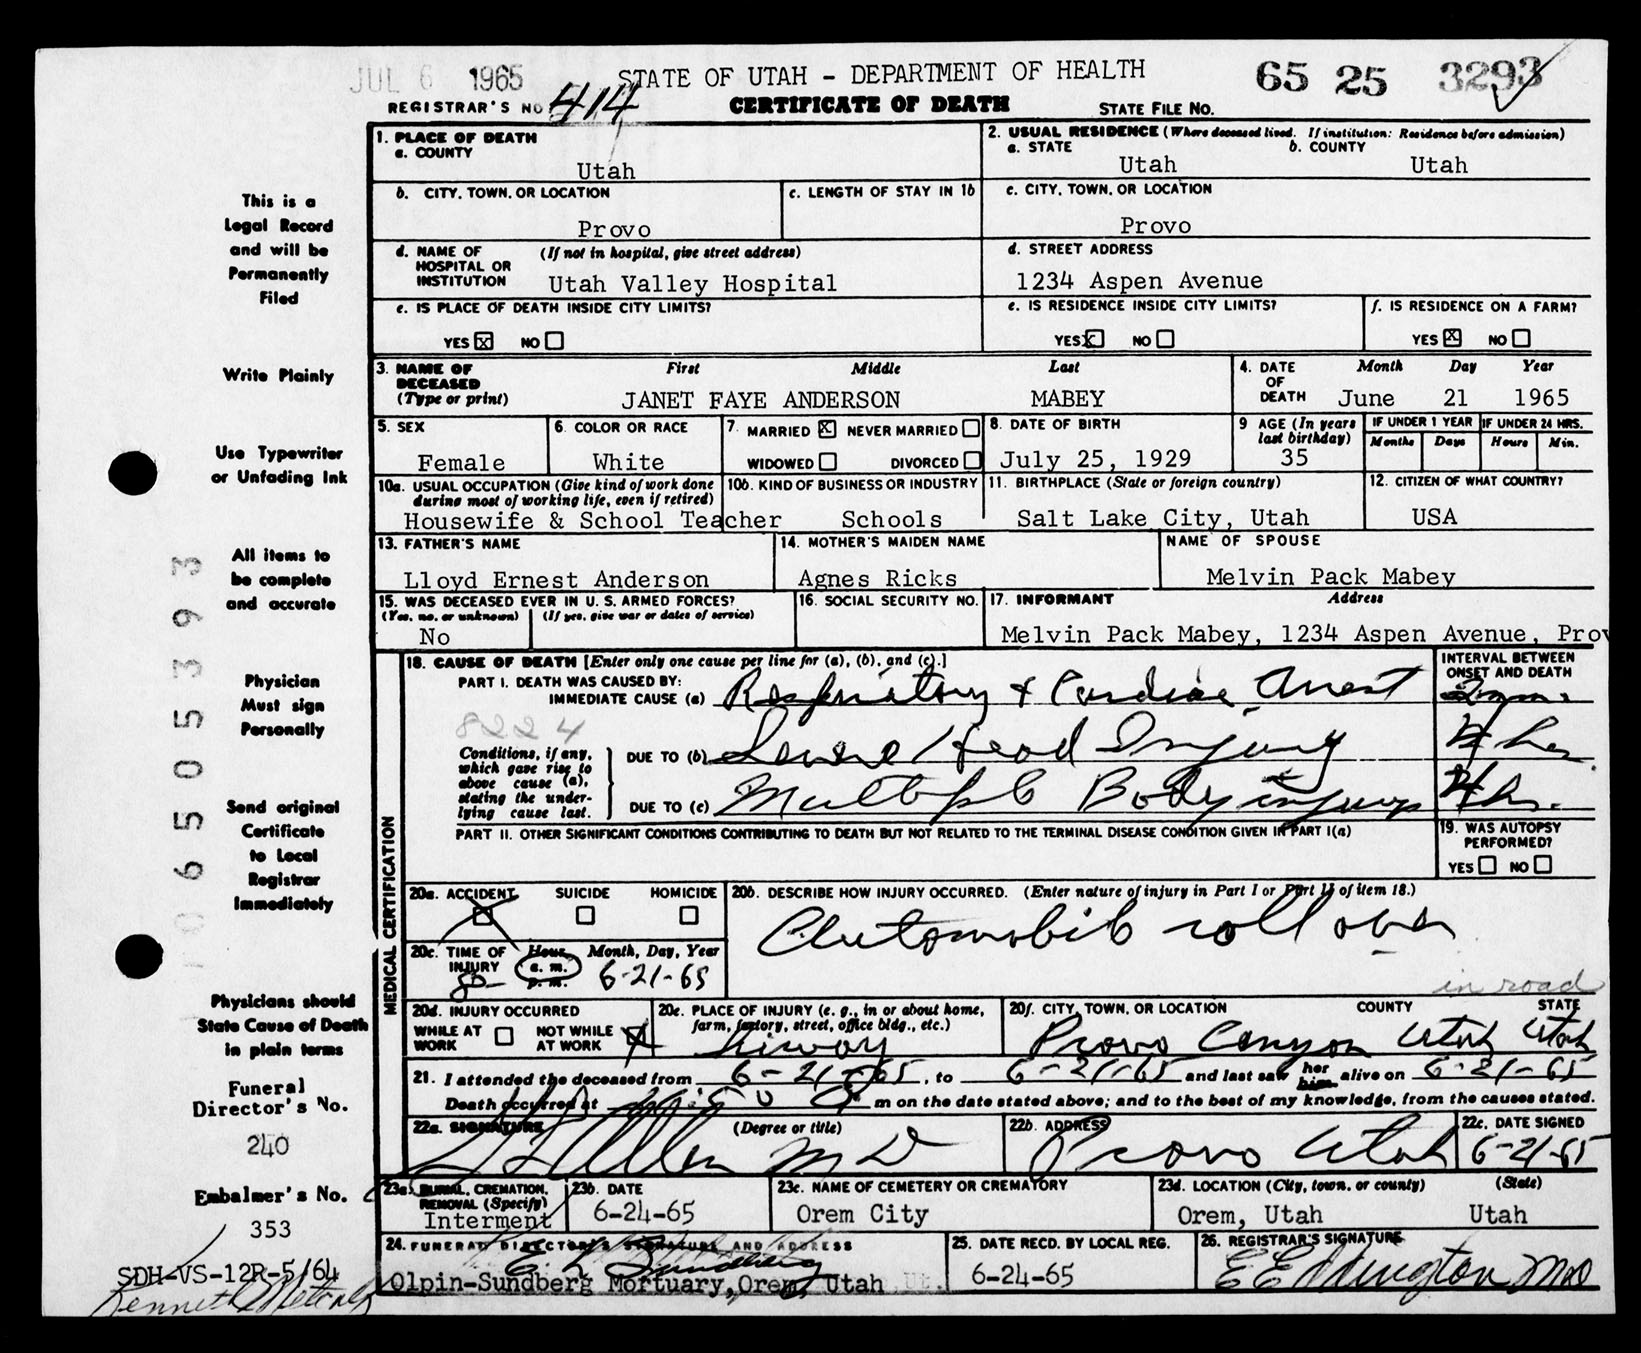 JUL 6 1965 STATE OF UTAH - DEPARTMENT OF HEALTH 65 25 3293
REGISTRAR'S NO 414 CERTIFICATE OF DEATH STATE FILE NO.
1. PLACE OF DEATH
a. COUNTY
Utah
2. USUAL RESIDENCE (Where deceased lived. If institution: Residence before admission)
a. STATE b. COUNTY
Utah Utah
b. CITY, TOWN, OR LOCATION
Provo
c. LENGTH OF STAY IN 1b
c. CITY, TOWN, OR LOCATION
Provo
d. NAME OF (If not in hospital, give street address)
HOSPITAL OR
INSTITUTION Utah Valley Hospital
d. STREET ADDRESS
1234 Aspen Avenue
e. IS PLACE OF DEATH INSIDE CITY LIMITS?
YES X NO
e. IS RESIDENCE INSIDE CITY LIMITS?
YES X NO
f. IS RESIDENCE ON A FARM?
YES X NO
3. NAME OF First Middle Last
DECEASED
(Type or print) JANET FAYE ANDERSON MABEY
4. DATE Month Day Year
OF
DEATH June 21 1965
5. SEX
Female
6. COLOR OR RACE
White
7. MARRIED X NEVER MARRIED
WIDOWED DIVORCED
8. DATE OF BIRTH
July 25, 1929
9 AGE (In years
last birthday)
35
IF UNDER 1 YEAR IF UNDER 24 HRS.
Months Days Hours Min.
10a. USUAL OCCUPATION (Give kind of work done
during most of working life, even if retired)
Housewife & School Teacher
10b. KIND OF BUSINESS OR INDUSTRY
Schools
11. BIRTHPLACE (State or foreign country)
Salt Lake City, Utah
12. CITIZEN OF WHAT COUNTRY?
USA
13. FATHER'S NAME
Lloyd Ernest Anderson
14. MOTHER'S MAIDEN NAME
Agnes Ricks
NAME OF SPOUSE
Melvin Pack Mabey
15. WAS DECEASED EVER IN U. S. ARMED FORCES?
(Yes, no, or unknown) (If yes, give war or dates of service)
No
16. SOCIAL SECURITY NO.
17. INFORMANT Address
Melvin Pack Mabey, 1234 Aspen Avenue, Prov
MEDICAL CERTIFICATION
18. CAUSE OF DEATH [Enter only one cause per line for (a), (b), and (c).]
PART I. DEATH WAS CAUSED BY:
IMMEDIATE CAUSE (a) Respiratory & Cardiac Arrest
INTERVAL BETWEEN
ONSET AND DEATH
8224
Conditions, if any,
which gave rise to
above cause (a),
stating the under-
lying cause last.
DUE TO (b) Severe Head Injury 4 hrs.
DUE TO (c) Multiple Body injurys 4 hrs.
PART II. OTHER SIGNIFICANT CONDITIONS CONTRIBUTING TO DEATH BUT NOT RELATED TO THE TERMINAL DISEASE CONDITION GIVEN IN PART I(a)
19. WAS AUTOPSY
PERFORMED?
YES NO
20a. ACCIDENT SUICIDE HOMICIDE
X
20b. DESCRIBE HOW INJURY OCCURRED. (Enter nature of injury in Part I or Part II of item 18.)
Automobile roll over
in road
20c. TIME OF Hour Month, Day, Year
INJURY a. m.
p. m. 6-21-65
20d. INJURY OCCURRED
WHILE AT NOT WHILE
WORK AT WORK X
20e. PLACE OF INJURY (e. g., in or about home,
farm, factory, street, office bldg., etc.)
hiway
20f. CITY, TOWN, OR LOCATION COUNTY STATE
Provo Canyon Utah Utah
21. I attended the deceased from 6-21-65, to 6-21-65 and last saw her him alive on 6-21-65
Death occurred at m on the date stated above; and to the best of my knowledge, from the causes stated.
22a. SIGNATURE (Degree or title)
Allen MD
22b. ADDRESS
Provo Utah
22c. DATE SIGNED
6-21-65
23a. BURIAL, CREMATION,
REMOVAL (Specify)
Interment
23b. DATE
6-24-65
23c. NAME OF CEMETERY OR CREMATORY
Orem City
23d. LOCATION (City, town, or county) (State)
Orem, Utah Utah
24. FUNERAL DIRECTOR'S SIGNATURE AND ADDRESS
Sundberg
Olpin-Sundberg Mortuary, Orem, Utah
25. DATE RECD. BY LOCAL REG.
6-24-65
26. REGISTRAR'S SIGNATURE
E E Eddington MD
This is a
Legal Record
and will be
Permanently
Filed
Write Plainly
Use Typewriter
or Unfading Ink
All items to
be complete
and accurate
Physician
Must sign
Personally
Send original
Certificate
to Local
Registrar
Immediately
Physicians should
State Cause of Death
in plain terms
Funeral
Director's No.
240
Embalmer's No.
353
SDH-VS-12R-5/64
Kenneth Metcalf
06505393